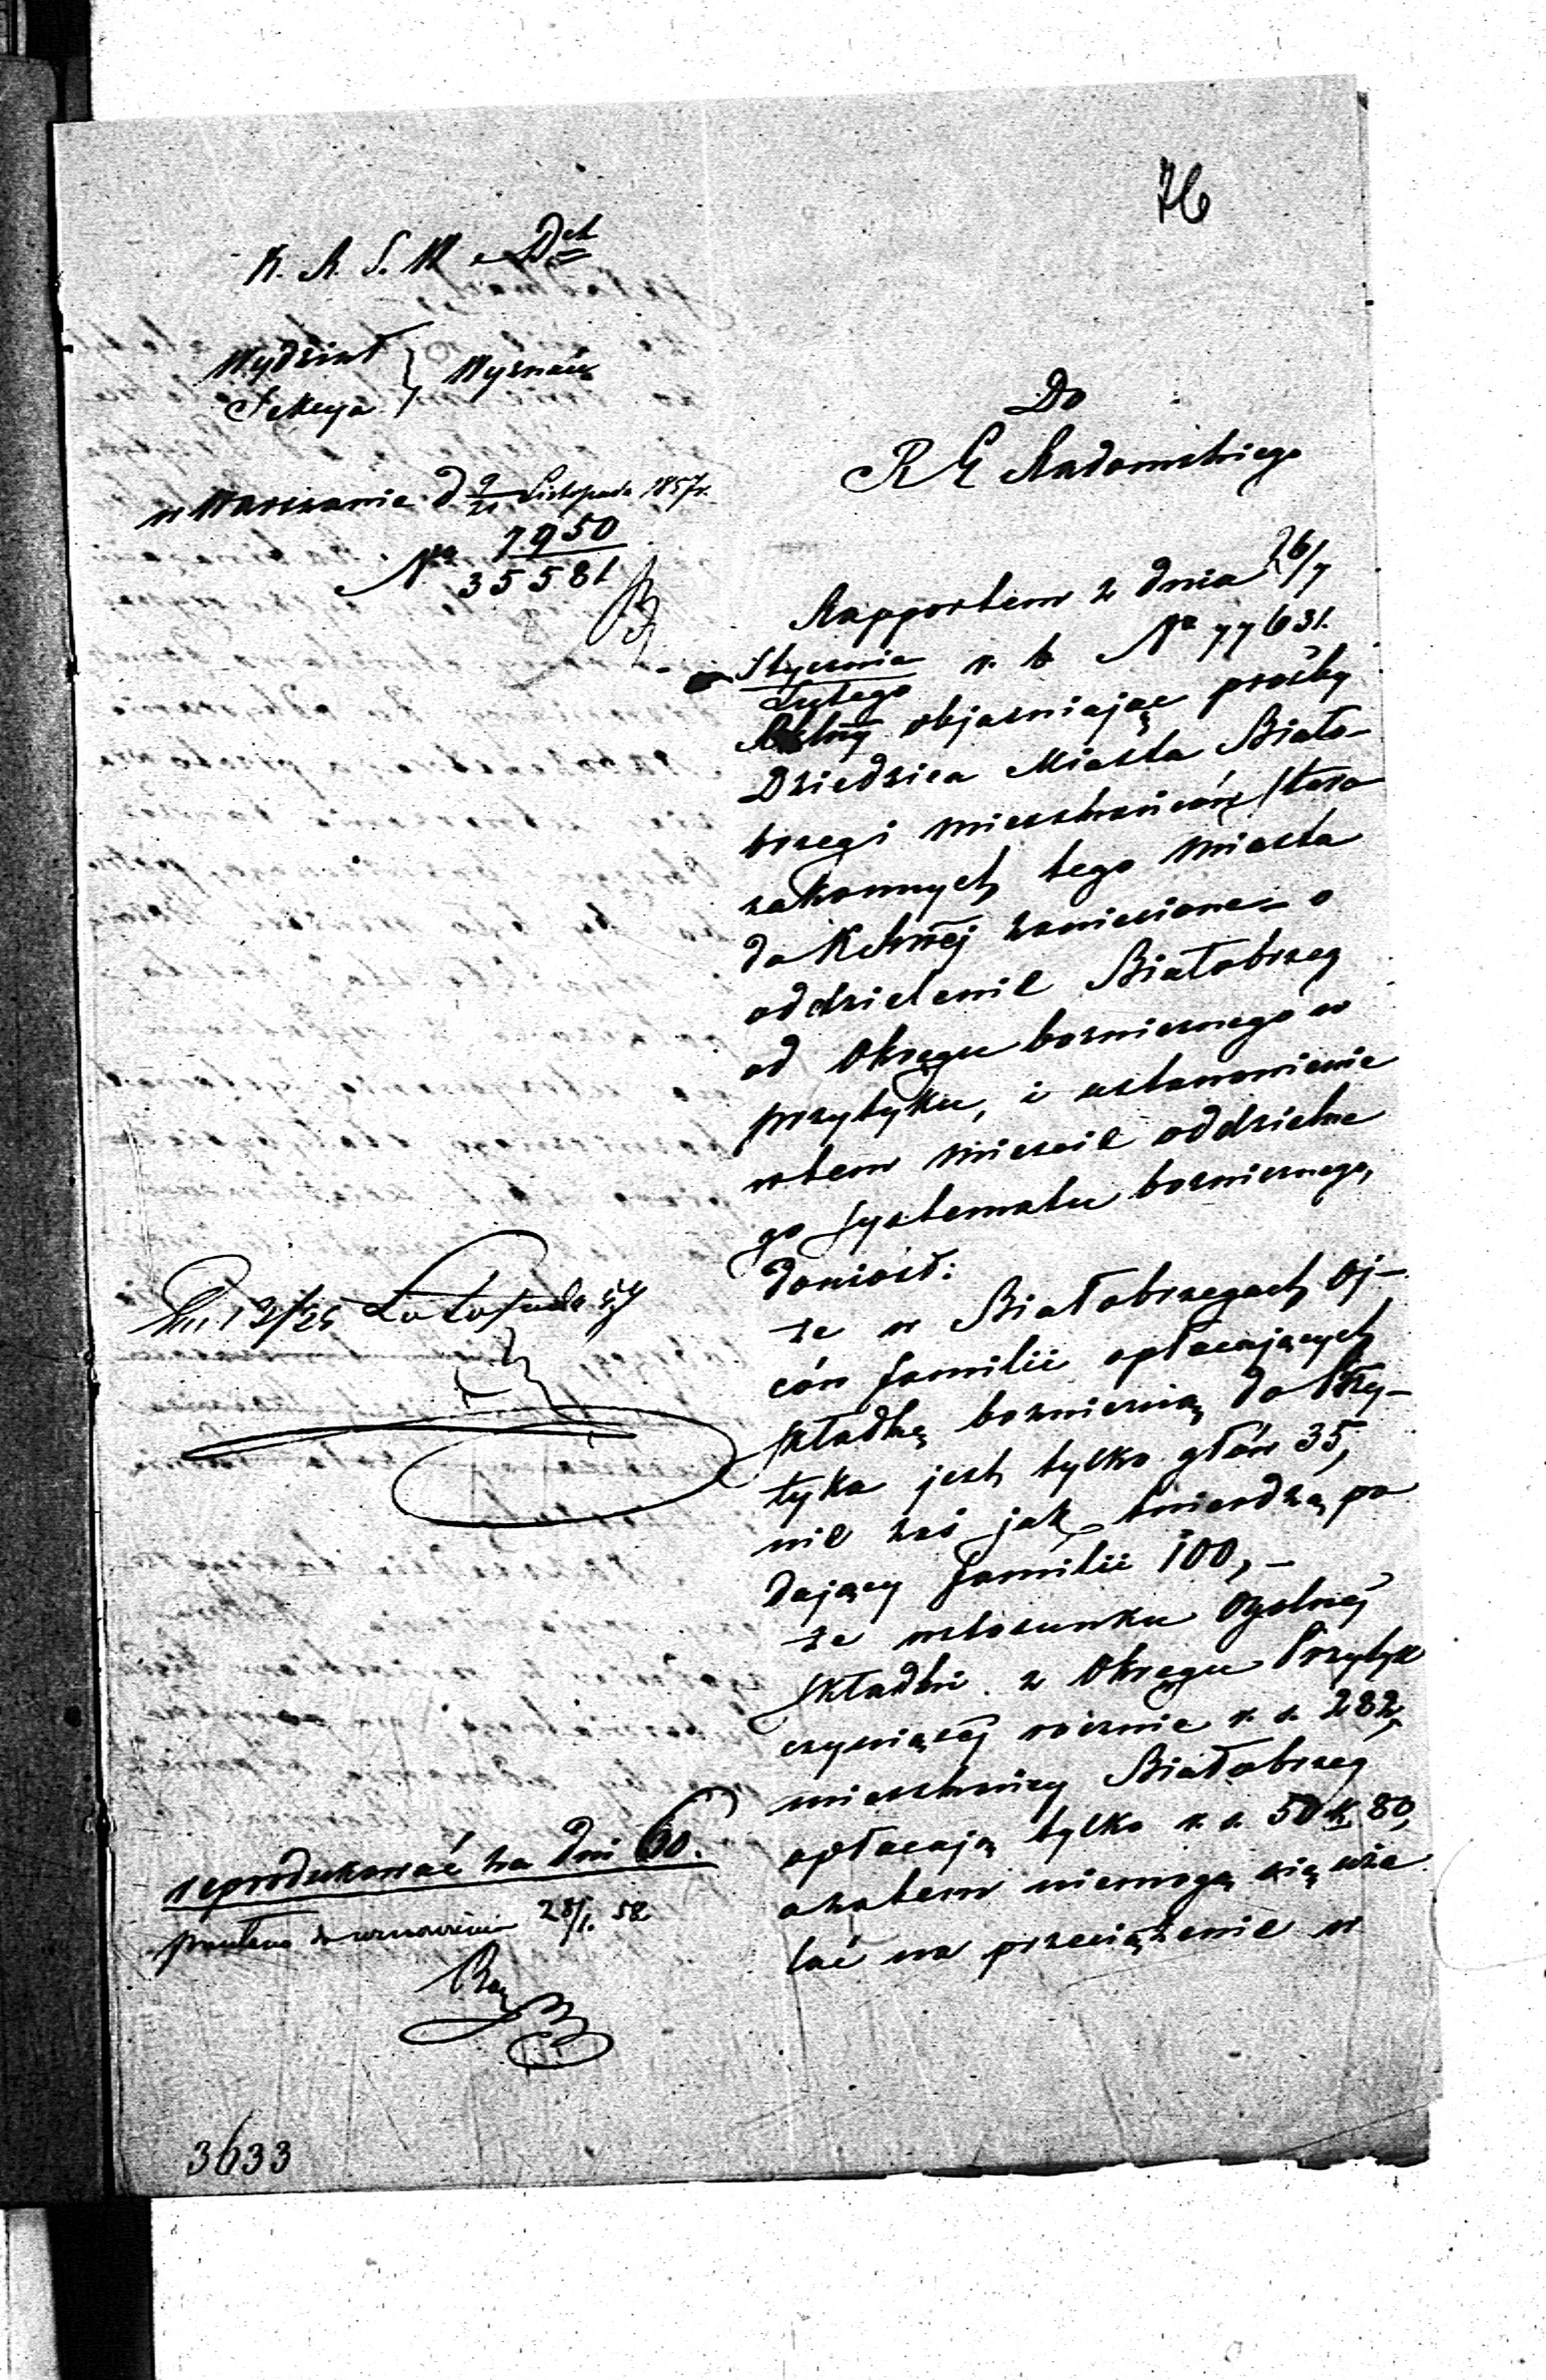 76
K. R. S. W. i D.
Wydział
Sekcya
Wyznań
w Warszawie d. 9/21 Listopada 1857 r.
No 7950
35581
Do
R G Radomskiego
Rapportem z dnia 26/7
Stycznia
Lutego
r. b. No 77631.
objaśniając prośby
Dziedzica Miasta Biało-
brzegi mieszkańców staro
zakonnych tego miasta
do zaniesione - o
oddzielenie Białobrzeg
od Okręgu bożniczego w
Przytyku, i ustanowienie
w tem mieście oddzielne
go systematu bożniczego,
doniósł:
że w Białobrzegach oj-
ców familii opłacających
składkę bożniczną do Przy-
tyka jest tylko głów 35,
nie zaś jak twierdzą po
dający familii 100, -
że w stosunku ogolnej
składki z Okręgu Przytyk
czyniącej rocznie r. s. 282,
mieszkańcy Białobrzeg
opłacają tylko r. s. 50 k 80,
a zatem niemogą się uża
lać na przeciążenie w
12/24 Listopada 57
reprodukować za dni 60.
28/1. 58
3633